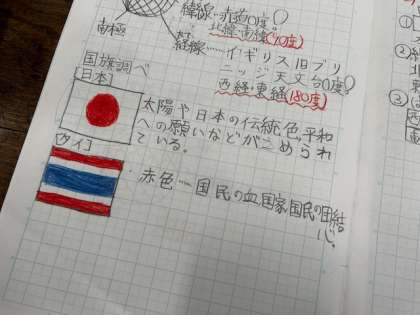 緯線…赤道0度
北緯・南緯(90度)
南極
経線……イギリス旧グリ
ニッジ天文台0度
西経・東経(180度)
国旗調べ
日本
太陽や日本の伝統色、平和
への願いなどがこめられ
ている。
タイ
・赤色……国民の血、国家国民の団結
心。
①
②
③